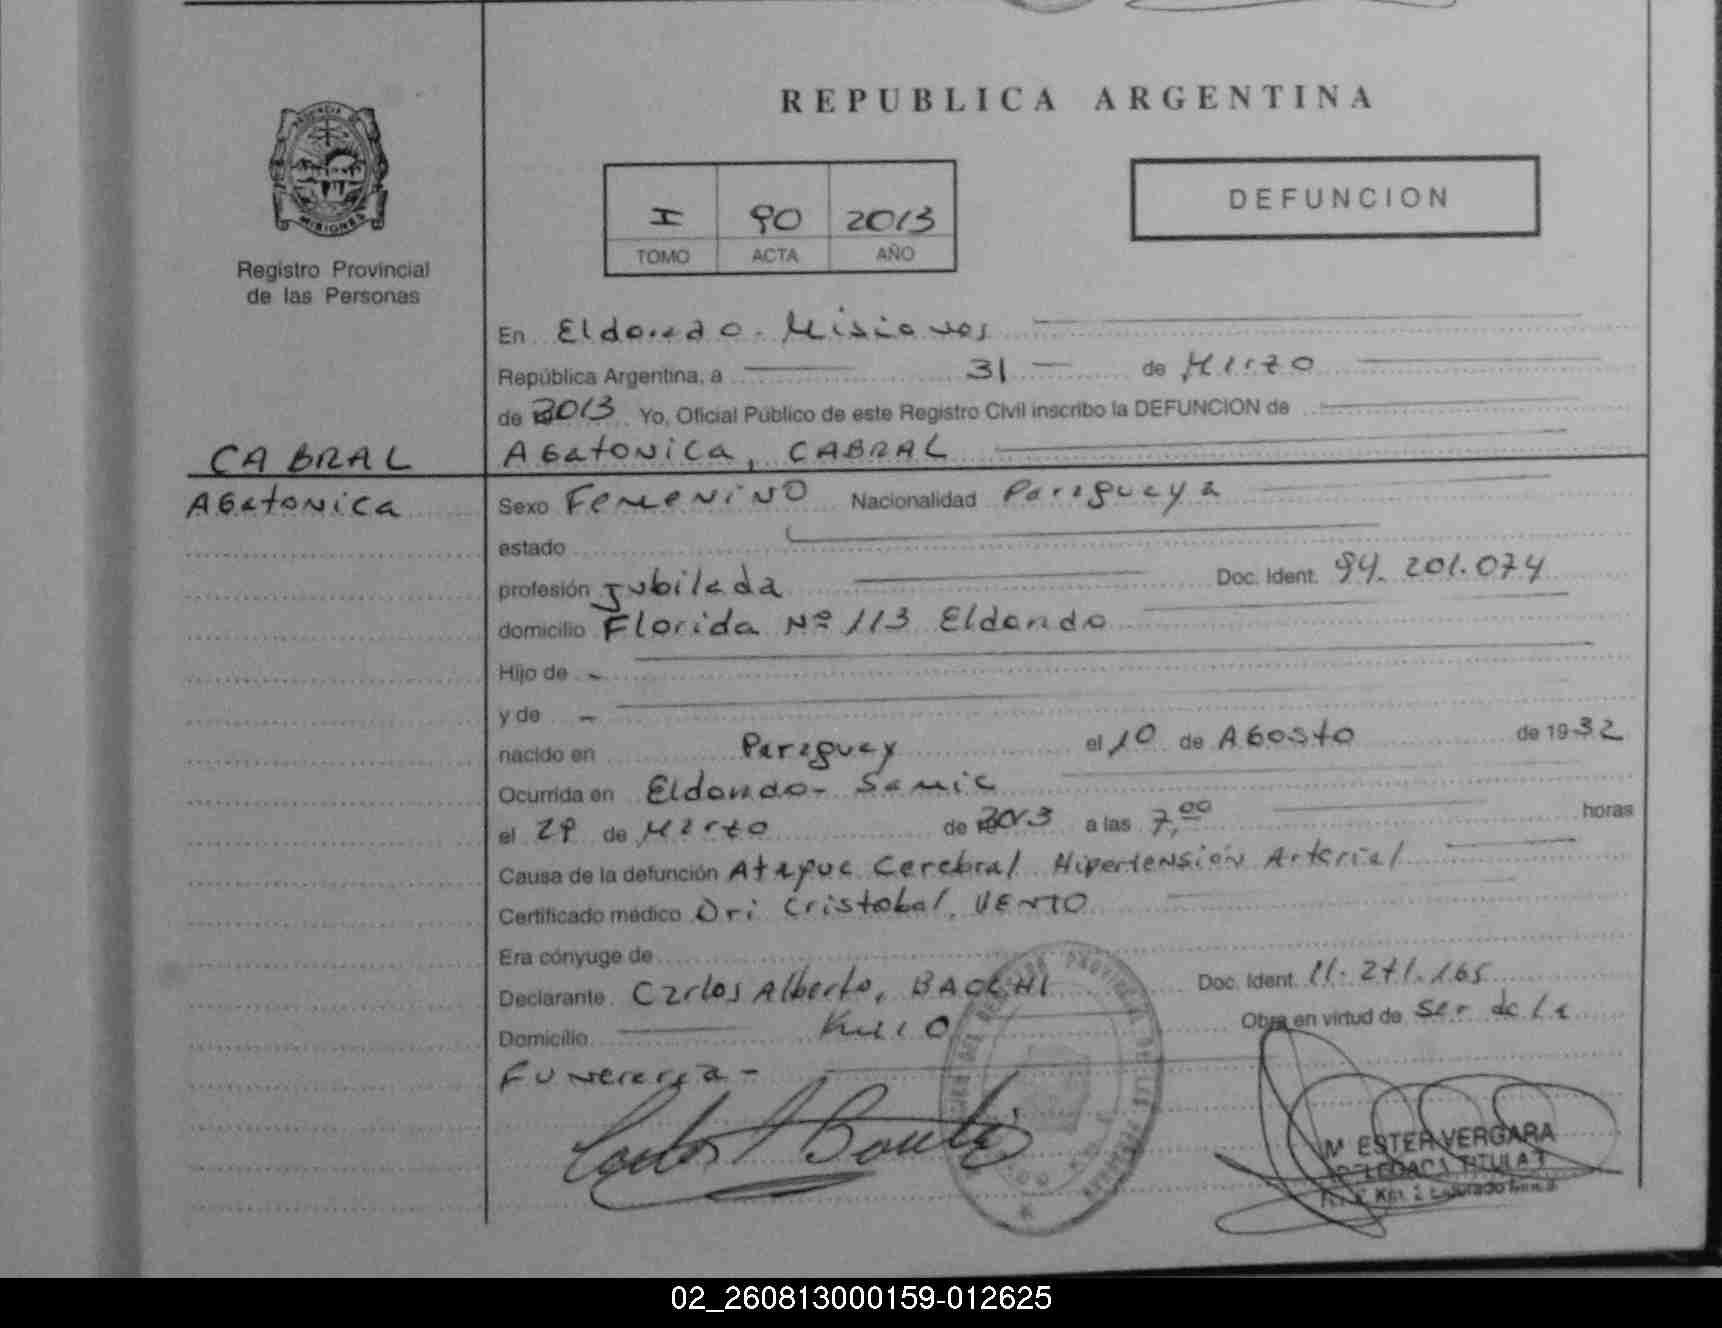 REPUBLICA ARGENTINA
PROVINCIA DE
MISIONES
Registro Provincial
de las Personas
I 90 2013
TOMO ACTA AÑO
DEFUNCION
En Eldorado - Misiones
República Argentina, a 31 de Marzo
de 2013 Yo, Oficial Público de este Registro Civil inscribo la DEFUNCION de
CABRAL
Agatonica, CABRAL
Agatonica
Sexo Femenino Nacionalidad Paraguaya
estado
profesión Jubilada Doc. Ident. 94.201.074
domicilio Florida Nº 113 Eldorado
Hijo de -
y de -
nacido en Paraguay el 10 de Agosto de 1932
Ocurrida en Eldorado - Samic
el 29 de Marzo de 2013 a las 7,00 horas
Causa de la defunción Ataque Cerebral Hipertensión Arterial
Certificado médico Dr: Cristobal, VENTO
Era cónyuge de
Declarante Carlos Alberto, Doc. Ident. 11.271.165
Domicilio Obra en virtud de Ser de la
Funeraria -
Mª ESTER VERGARA
DELEGADA TITULAR
Km. 2 Eldorado
02_260813000159-012625